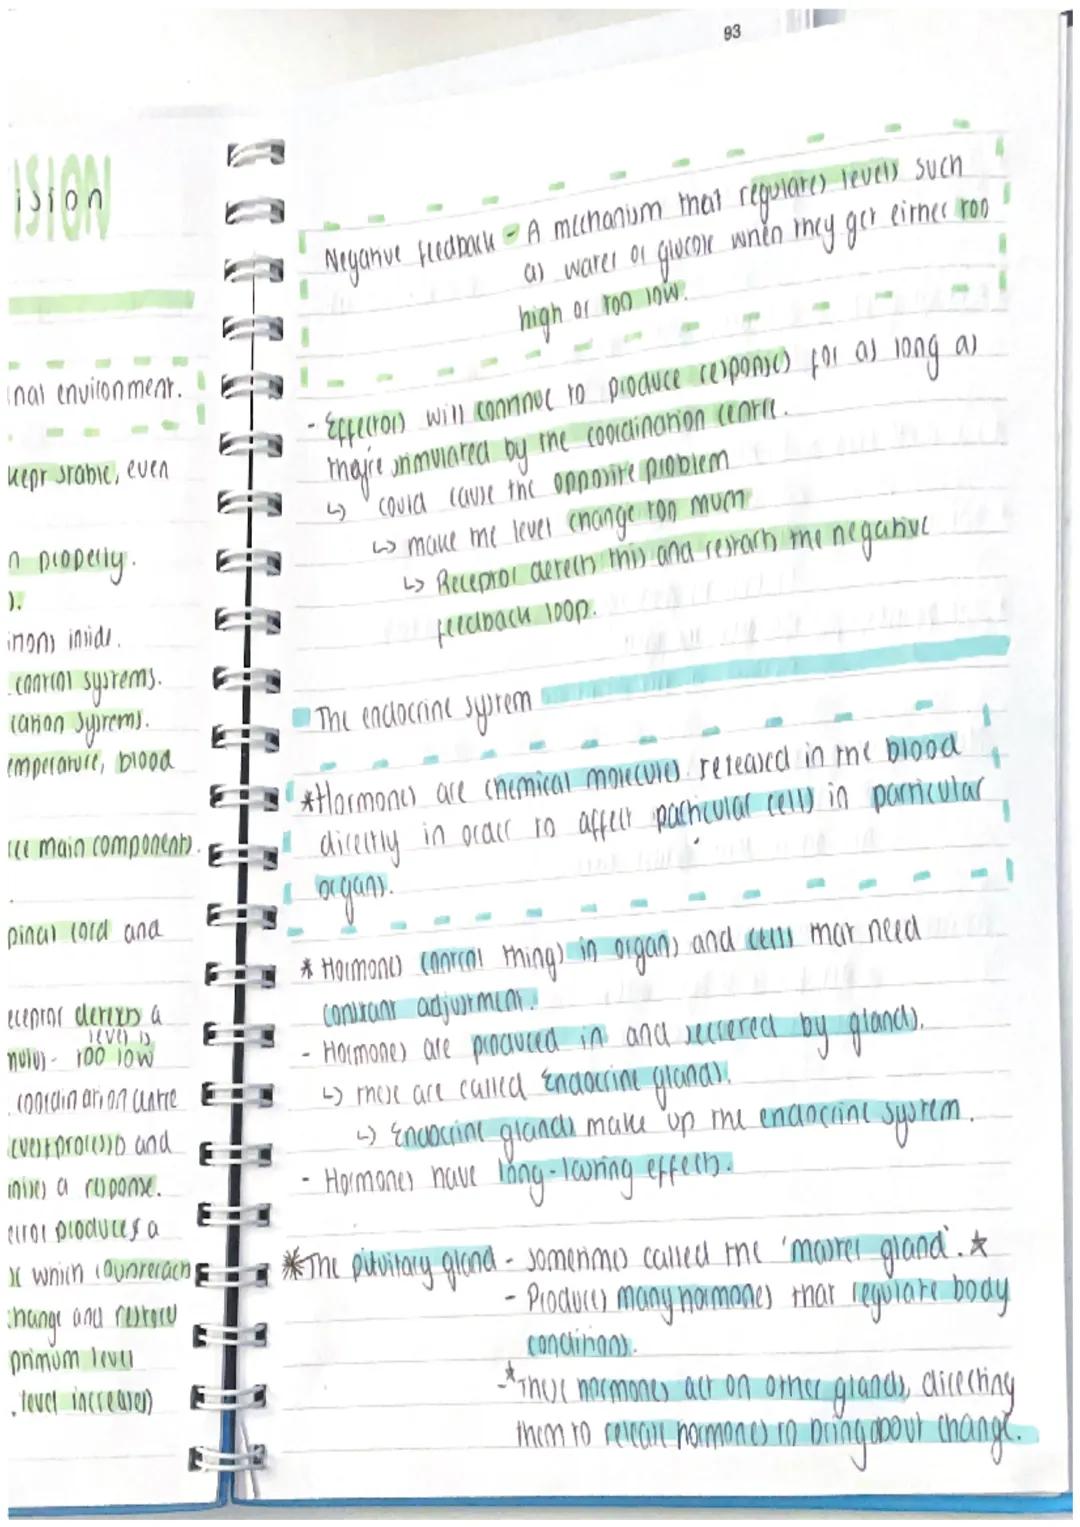 93
ision
inal environment.
kept stable, even
n properly.
).
itions inside.
control systems.
cation systems.
emperature, blood
ree main components.
pinal cord and
eceptor detects a
level is
mulus - too low
coordination centre
processes and
a response.
produces a
which counteracts
change and restores
level
level increases)
Negative feedback - A mechanism that regulates levels such
as water or glucose when they get either too
high or too low.
- Effectors will continue to produce responses for as long as
they're stimulated by the coordination centre.
↳ could cause the opposite problem
↳ make the level change too much
↳ Receptor detects this and restarts the negative
feedback loop.
The endocrine system
*Hormones are chemical molecules released in the blood
directly in order to affect particular cells in particular
organs.
* Hormones control things in organs and cells that need
constant adjustment.
- Hormones are produced in and secreted by glands.
↳ these are called Endocrine glands.
↳ Endocrine glands make up the endocrine system.
- Hormones have long-lasting effects.
*The pituitary gland - sometimes called the 'master gland'.*
- Produces many hormones that regulate body
conditions.
-*These hormones act on other glands, directing
them to release hormones to bring about change.